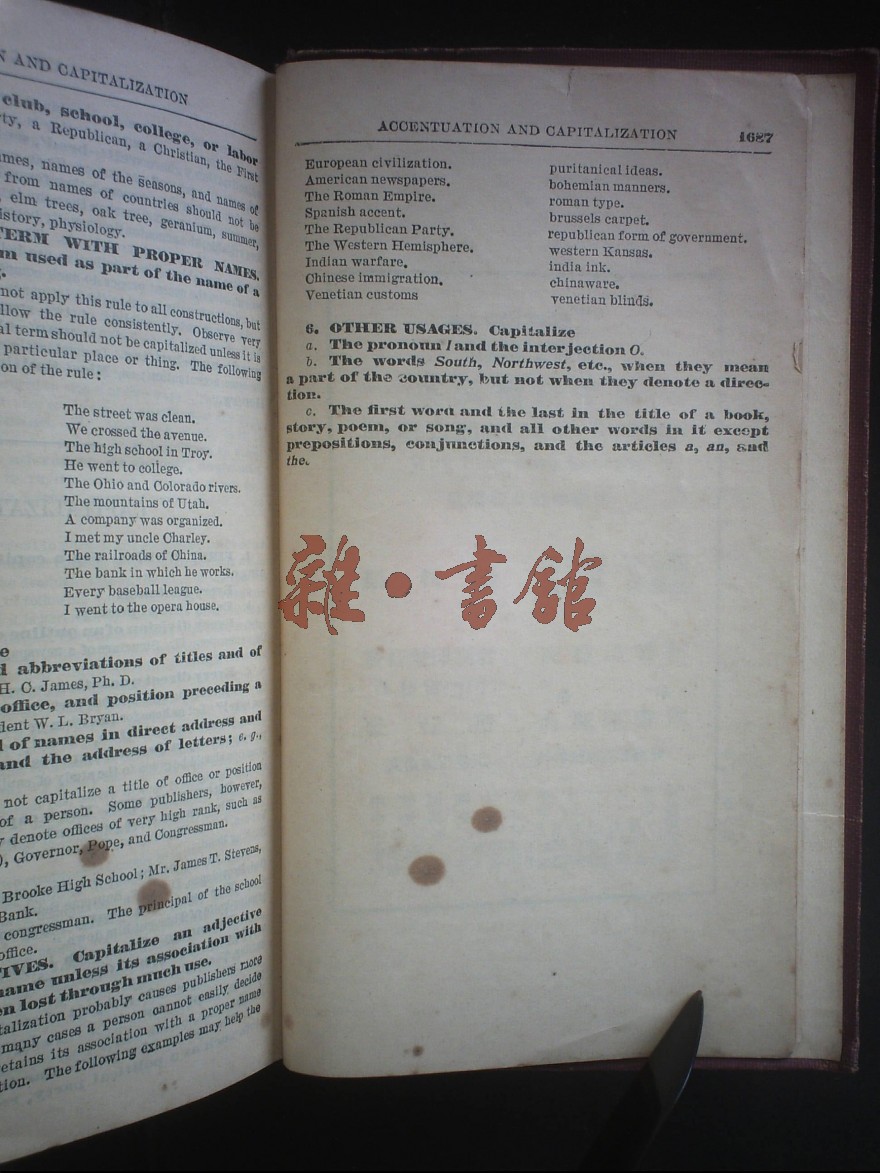 N AND CAPITALIZATION
club, school, college, or labor
ty, a Republican, a Christian, the First
mes, names of the seasons, and names of
from names of countries should not be
, elm trees, oak tree, geranium, summer,
istory, physiology.
TERM WITH PROPER NAMES.
m used as part of the name of a
g.
not apply this rule to all constructions, but
llow the rule consistently. Observe very
al term should not be capitalized unless it is
particular place or thing. The following
on of the rule:
The street was clean.
We crossed the avenue.
The high school in Troy.
He went to college.
The Ohio and Colorado rivers.
The mountains of Utah.
A company was organized.
I met my uncle Charley.
The railroads of China.
The bank in which he works.
Every baseball league.
I went to the opera house.
e
d abbreviations of titles and of
H. C. James, Ph. D.
office, and position preceding a
dent W. L. Bryan.
d of names in direct address and
and the address of letters; e. g.,
not capitalize a title of office or position
of a person. Some publishers, however,
y denote offices of very high rank, such as
), Governor, Pope, and Congressman.
Brooke High School; Mr. James T. Stevens,
Bank.
congressman. The principal of the school
office.
TIVES. Capitalize an adjective
name unless its association with
en lost through much use.
talization probably causes publishers more
many cases a person cannot easily decide
etains its association with a proper name
tion. The following examples may help the
ACCENTUATION AND CAPITALIZATION 1687
European civilization. puritanical ideas.
American newspapers. bohemian manners.
The Roman Empire. roman type.
Spanish accent. brussels carpet.
The Republican Party. republican form of government.
The Western Hemisphere. western Kansas.
Indian warfare. india ink.
Chinese immigration. chinaware.
Venetian customs venetian blinds.
6. OTHER USAGES. Capitalize
a. The pronoun I and the interjection O.
b. The words South, Northwest, etc., when they mean
a part of the country, but not when they denote a direc-
tion.
c. The first word and the last in the title of a book,
story, poem, or song, and all other words in it except
prepositions, conjunctions, and the articles a, an, and
the.
雜·書館